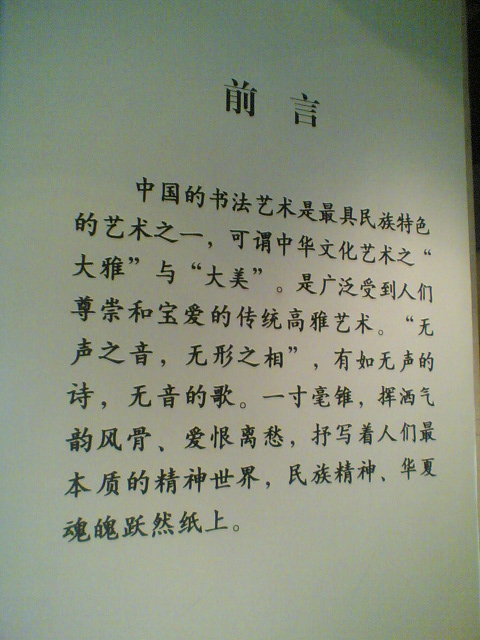 前言
中国的书法艺术是最具民族特色
的艺术之一，可谓中华文化艺术之“
大雅”与“大美”。是广泛受到人们
尊崇和宝爱的传统高雅艺术。“无
声之音，无形之相”，有如无声的
诗，无音的歌。一寸毫锥，挥洒气
韵风骨、爱恨离愁，抒写着人们最
本质的精神世界，民族精神、华夏
魂魄跃然纸上。